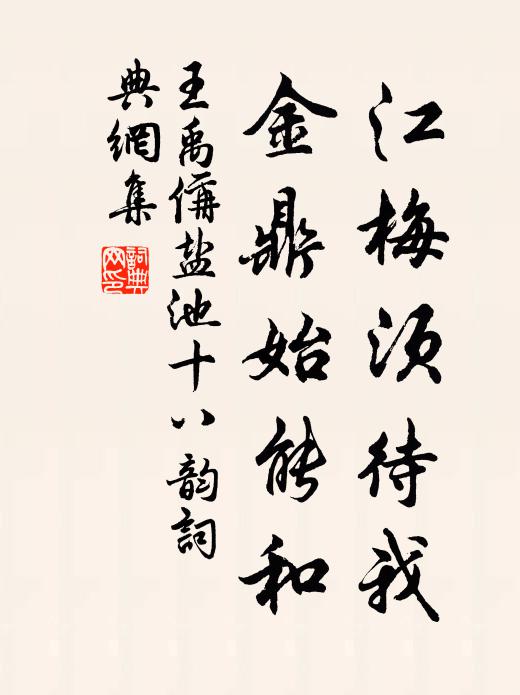 江梅须待我
金鼎始能和
王禹偁盐池十八韵詞
典網集
詞典網印